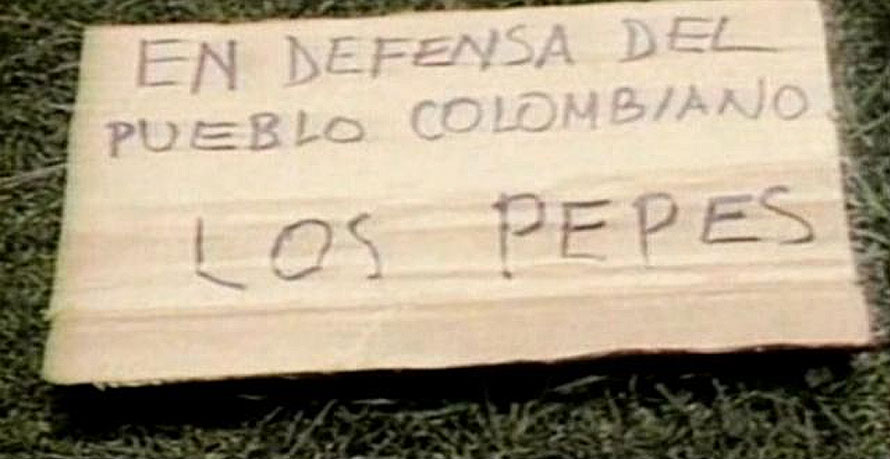 EN DEFENSA DEL
PUEBLO COLOMBIANO
LOS PEPES